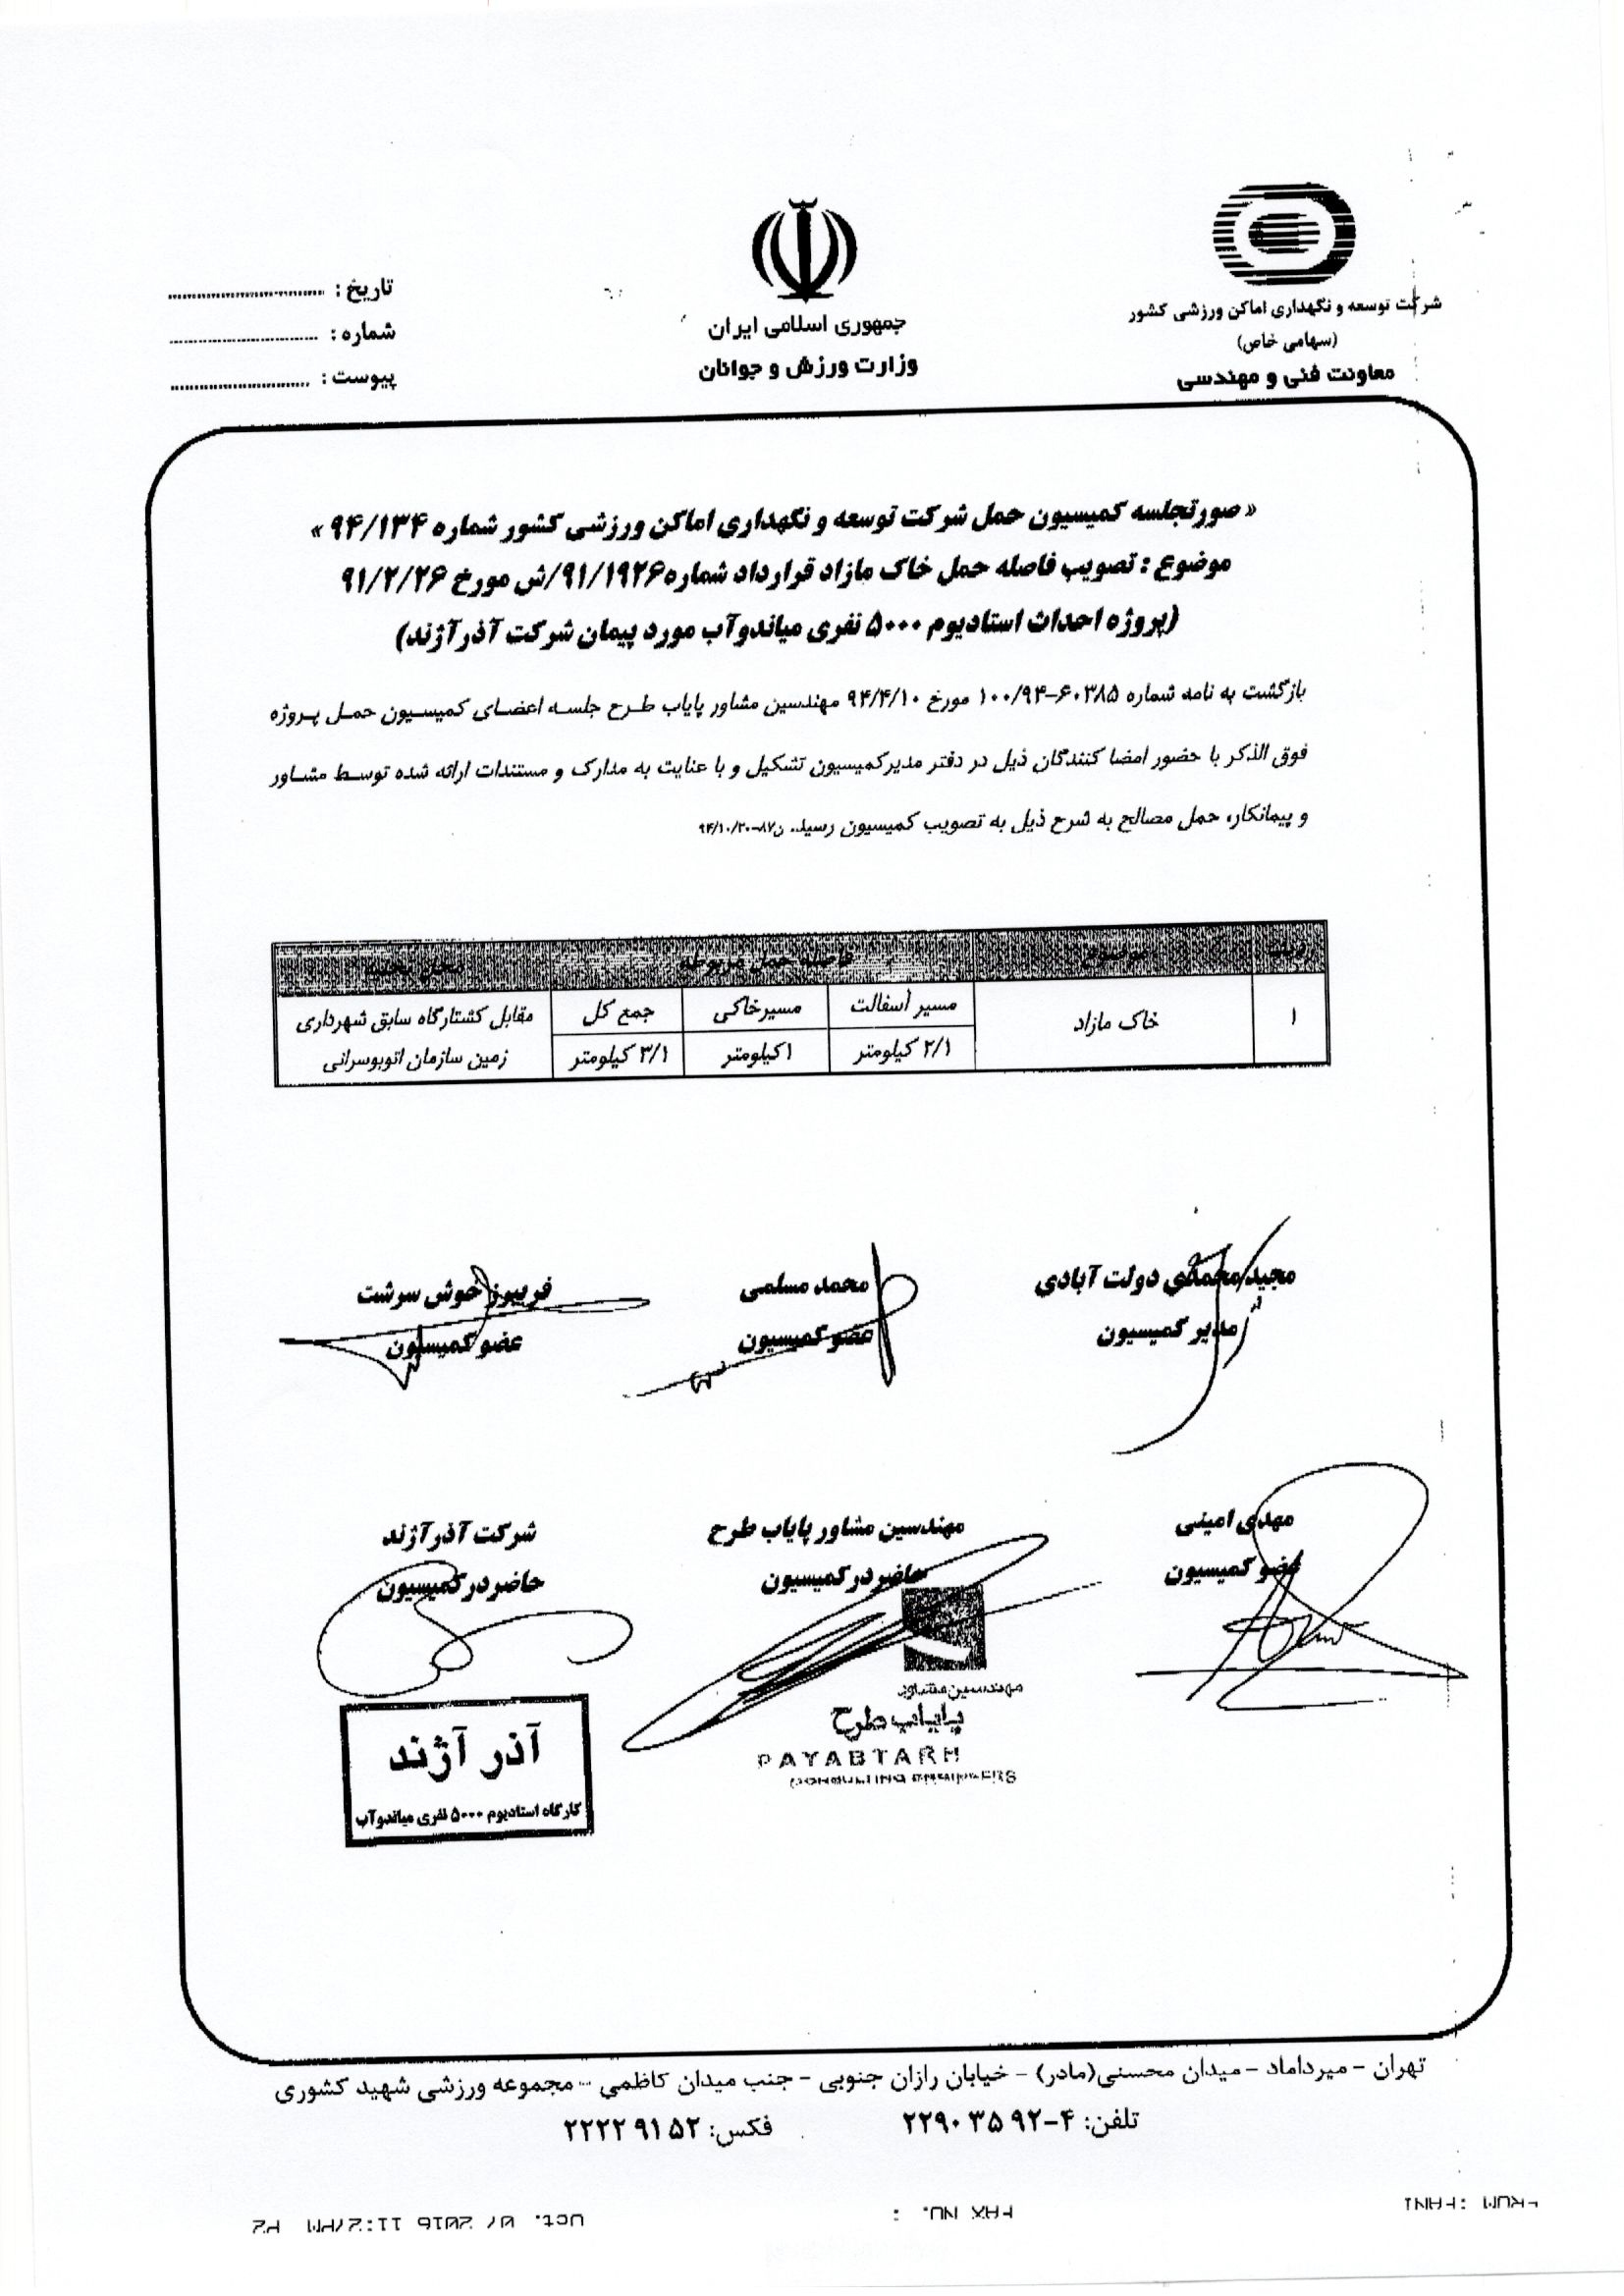 شرکت توسعه و نگهداری اماکن ورزشی کشور
(سهامی خاص)
معاونت فنی و مهندسی
جمهوری اسلامی ایران
وزارت ورزش و جوانان
تاریخ :
شماره :
پیوست :
« صورتجلسه کمیسیون حمل شرکت توسعه و نگهداری اماکن ورزشی کشور شماره ۹۴/۱۳۴ »
موضوع : تصویب فاصله حمل خاک مازاد قرارداد شماره ۹۱/۱۹۲۶/ش مورخ ۹۱/۲/۲۶
(پروژه احداث استادیوم ۵۰۰۰ نفری میاندوآب مورد پیمان شرکت آذرآژند)
بازگشت به نامه شماره ۶۰۳۸۵-۱۰۰/۹۴ مورخ ۹۴/۴/۱۰ مهندسین مشاور پایاب طرح جلسه اعضای کمیسیون حمل پروژه
فوق الذکر با حضور امضا کنندگان ذیل در دفتر مدیرکمیسیون تشکیل و با عنایت به مدارک و مستندات ارائه شده توسط مشاور
و پیمانکار، حمل مصالح به شرح ذیل به تصویب کمیسیون رسید. ن۸۷-۹۴/۱۰/۲۰
ردیف موضوع فاصله حمل مربوطه محل تخلیه
۱ خاک مازاد مسیر آسفالت مسیرخاکی جمع کل مقابل کشتارگاه سابق شهرداری
۲/۱ کیلومتر ۱کیلومتر ۳/۱ کیلومتر زمین سازمان اتوبوسرانی
مجید محمدی دولت آبادی محمد مسلمی فریبرز خوش سرشت
مدیر کمیسیون عضو کمیسیون عضو کمیسیون
مهدی امینی مهندسین مشاور پایاب طرح شرکت آذرآژند
عضو کمیسیون حاضر در کمیسیون حاضر در کمیسیون
مهندسین مشاور
پایاب طرح
PAYABTARH
CONSULTING ENGINEERS
آذر آژند
کارگاه استادیوم ۵۰۰۰ نفری میاندوآب
تهران - میرداماد - میدان محسنی(مادر) - خیابان رازان جنوبی - جنب میدان کاظمی - مجموعه ورزشی شهید کشوری
تلفن: ۴-۲۲۹۰۳۵۹۲ فکس: ۲۲۲۲۹۱۵۲
FAX NO. :
Oct. 07 2016 11:27PM P2